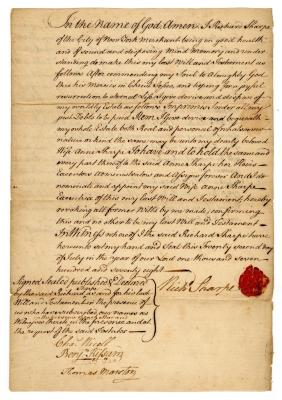 In the Name of God, Amen, I Richard Sharpe
of the City of New York merchant being in good health
and of sound and disposing Mind Memory and under
standing do make this my last Will and Testament as
follows After commending my Soul to Almighty God
thro' his Mercies in Christ Jesus, and hoping for a joyful
resurrection to eternal Life I give devise and dispose of
my worldly Estate as follows Imprimis I order all my
just Debts to be paid Item I give devise and bequeath
my whole Estate both Real and personal of whatsoever
nature or kind the same may be unto my dearly beloved
Wife Anne Sharpe To have and to hold the same and
every part thereof to the said Anne Sharpe her Heirs
Executors Administrators and Assigns forever And I do
nominate and appoint my said Wife Anne Sharpe
Executrix of this my last Will and Testament, hereby
revoking all former Wills by me made, confirming
this and no other to be my last Will and Testament
In Witness whereof I the said Richard Sharpe have
hereunto set my hand and Seal this Twenty second Day
of July in the year of our Lord one thousand seven
hundred and seventy eight
Signed Sealed published & Declared
by the said Richard as and for his last
Will and Testament in the presence of
us who have subscribed our names as
Witnesses thereto in the presence and at
the request of the said Testator
Rich'd Sharpe
Cha' Nicoll
Benj Kissam
Thomas Marston